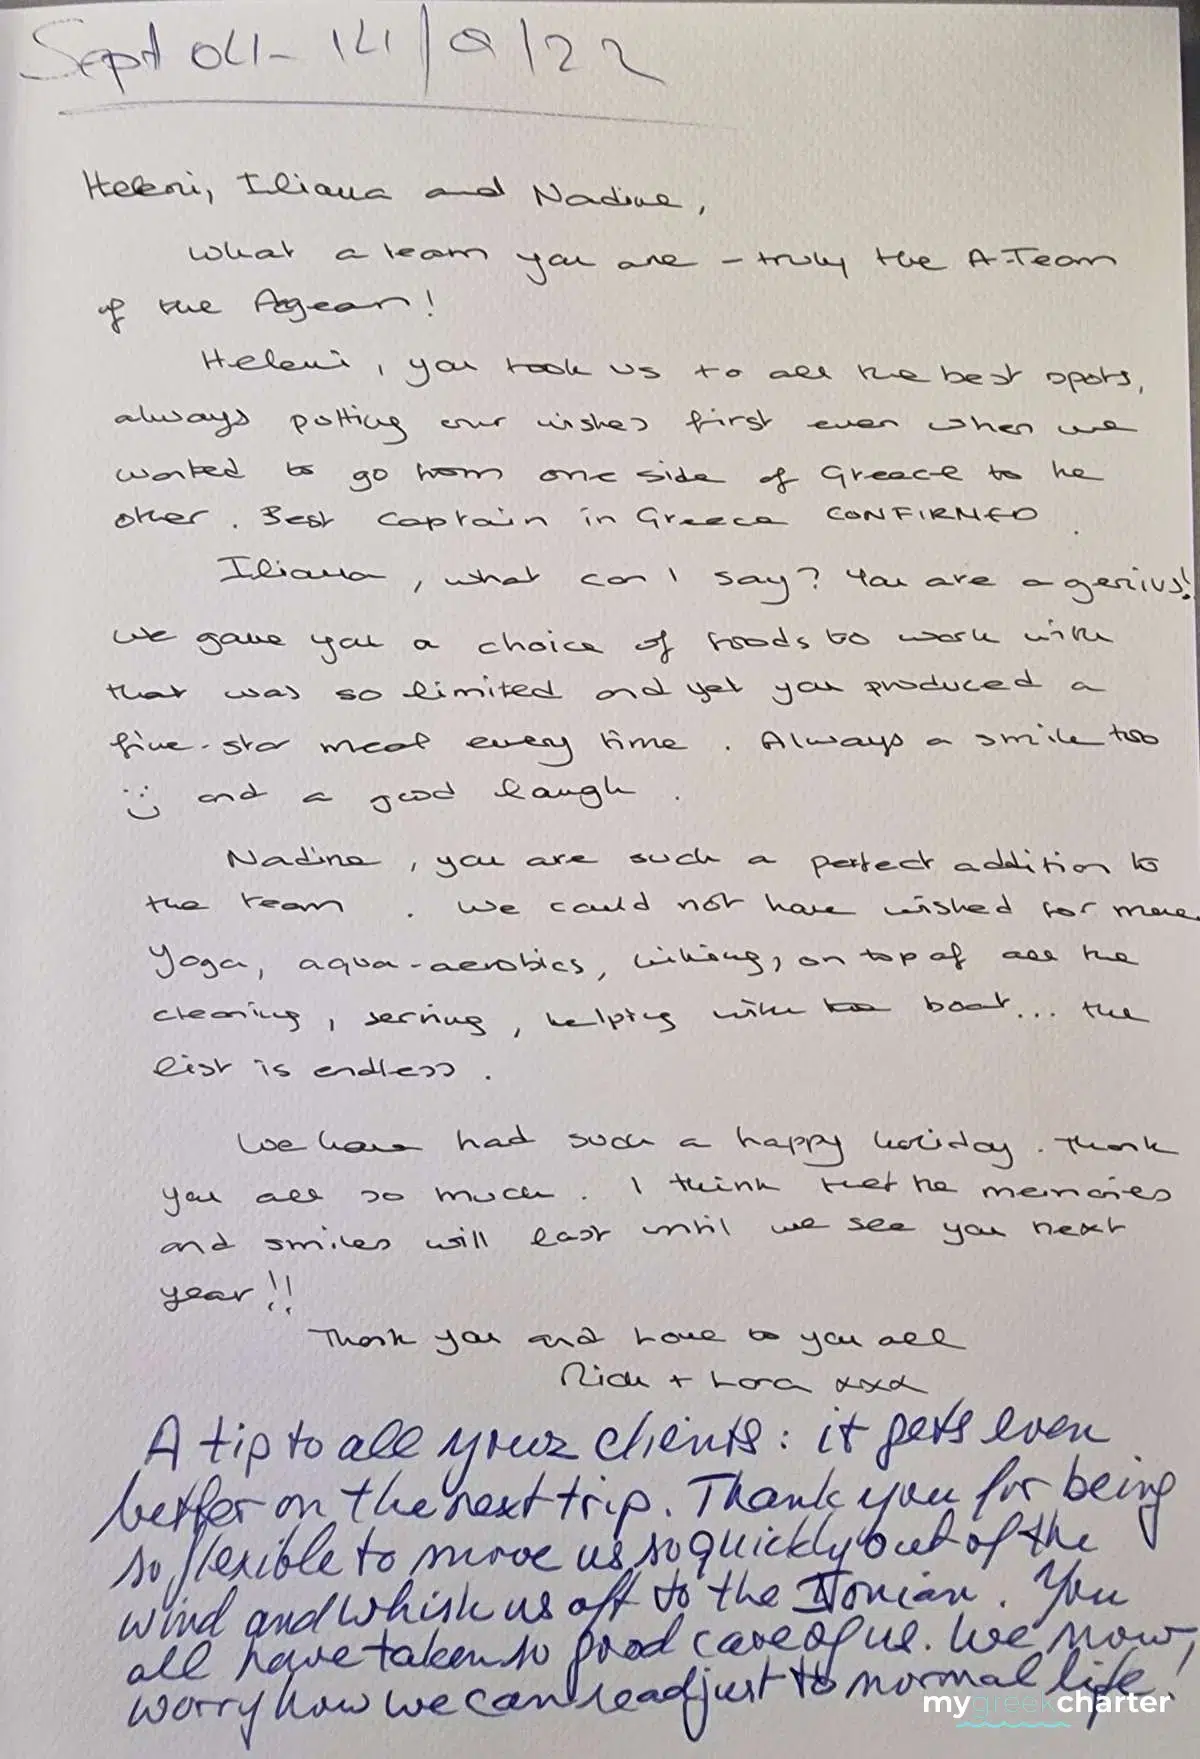 Sept 04 - 14/9/22
Heleni, Iliana and Nadine,
What a team you are - truly the A-Team
of the Agean!
Heleni, you took us to all the best spots,
always putting our wishes first even when we
wanted to go from one side of Greece to the
other. Best Captain in Greece CONFIRMED.
Iliana, what can I say? You are a genius!
We gave you a choice of foods to work with
that was so limited and yet you produced a
five-star meal every time. Always a smile too
:) and a good laugh.
Nadine, you are such a perfect addition to
the team. We could not have wished for more.
Yoga, aqua-aerobics, hiking, on top of all the
cleaning, serving, helping with the boat... the
list is endless.
We have had such a happy holiday. Thank
you all so much. I think that the memories
and smiles will last until we see you next
year!!
Thank you and Love to you all
Rick + Lora xxx
A tip to all your clients: it gets even
better on the next trip. Thank you for being
so flexible to move us so quickly out of the
wind and whisk us off to the Ionian. You
all have taken so good care of us. We now,
worry how we can readjust to normal life!
mygreekcharter